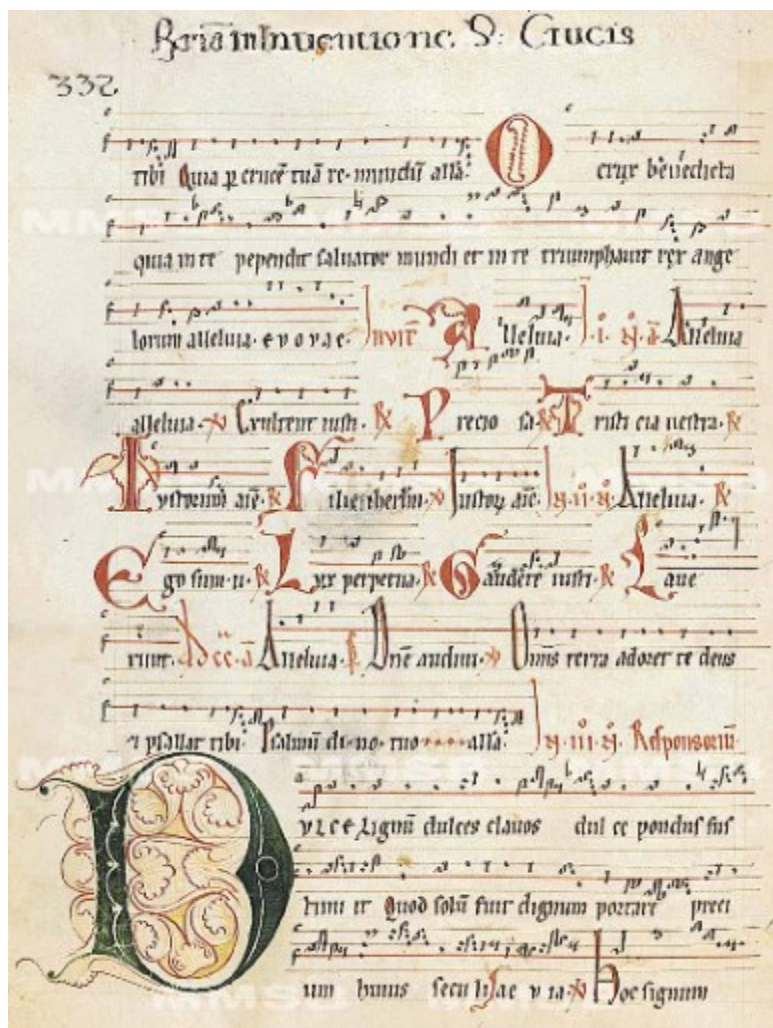 Feria in Inventione. S: Crucis
332
tibi Quia p crucē tuā re-mundū allā O crux benedicta
quia in te pependit salvator mundi et in te triumphavit rex ange
lorum alleluia. e v o v a e. Invit A lleluia. I. i. N. a Alleluia
alleluia. Exultent iusti. P recio sa T risti cia vestra.
I ustorum aīe. F ilie iherlm. Iustor aīe. I N. ii. N. Alleluia.
E go sum. u. L ux perpetua. G audete iusti. L ave
runt. Ad cc. a Alleluia. Dne audivi. Omis terra adoret te deus
i psallat tibi Psalmū di. no. tuo allā. I N. iii. N. Responsoriū
D V L C E Lignū dulces clavos dul ce pondus sus
tinu it Quod solū fuit dignum portare preci
um huius seculi Hoc signum